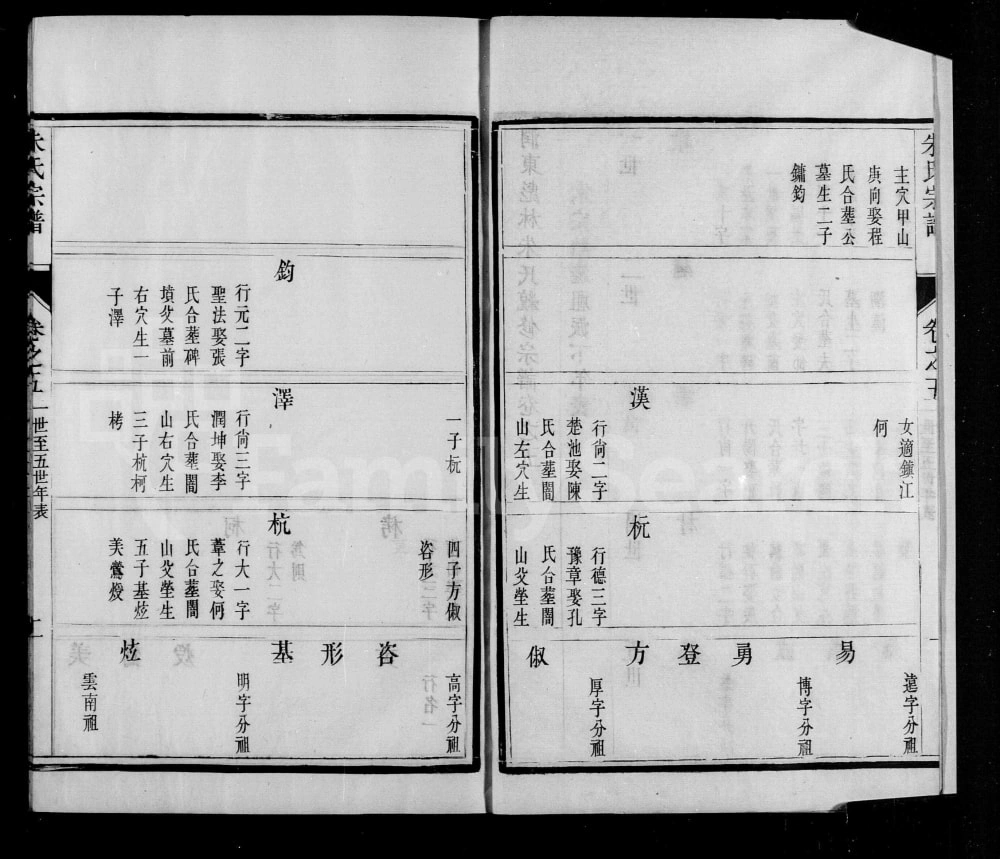 朱氏宗譜
卷之十五
一世至五世年表
主穴甲山
庚向娶程
氏合塟公
墓生二子
鏞鈞
女適鎮江
何
漢
行尙二字
楚池娶陳
氏合塟閣
山左穴生
一子杬
杬
行德三字
豫章娶孔
氏合塟閣
山父塋生
四子方俶
咨形
易
遠字分祖
勇
博字分祖
登
方
厚字分祖
俶
朱氏宗譜
鈞
行元二字
聖法娶張
氏合塟碑
墳父墓前
右穴生一
子澤
澤
行尙三字
潤坤娶李
氏合塟閣
山右穴生
三子杭柯
栲
杭
行大一字
葦之娶何
氏合塟閣
山父塋生
五子基炫
美鶯燬
咨
高字分祖
形
基
明字分祖
炫
雲南祖